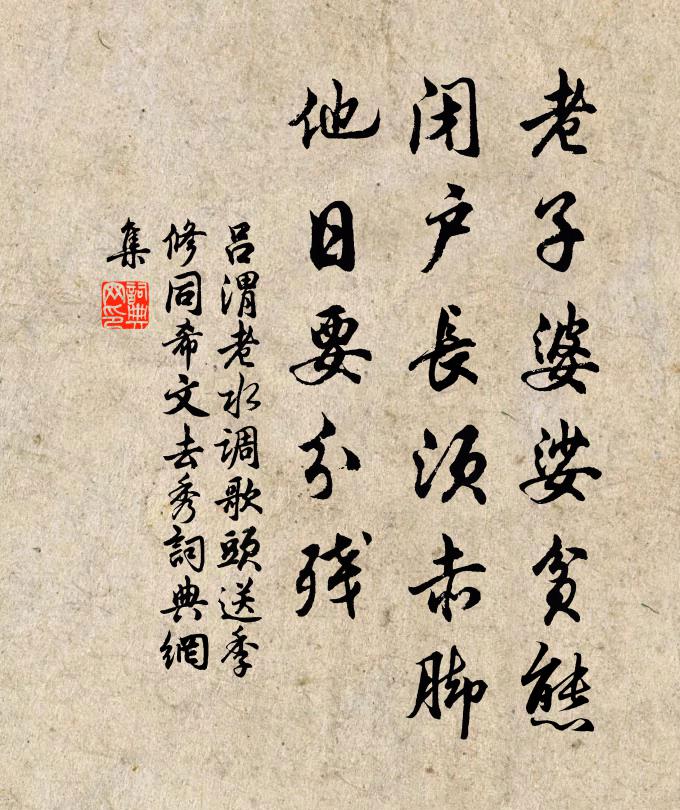 老子婆娑貧態
闭戶長须赤脚
他日要分殘
吕渭老水调歌頭送季
修同希文去秀詞典網
集
詞典
网印